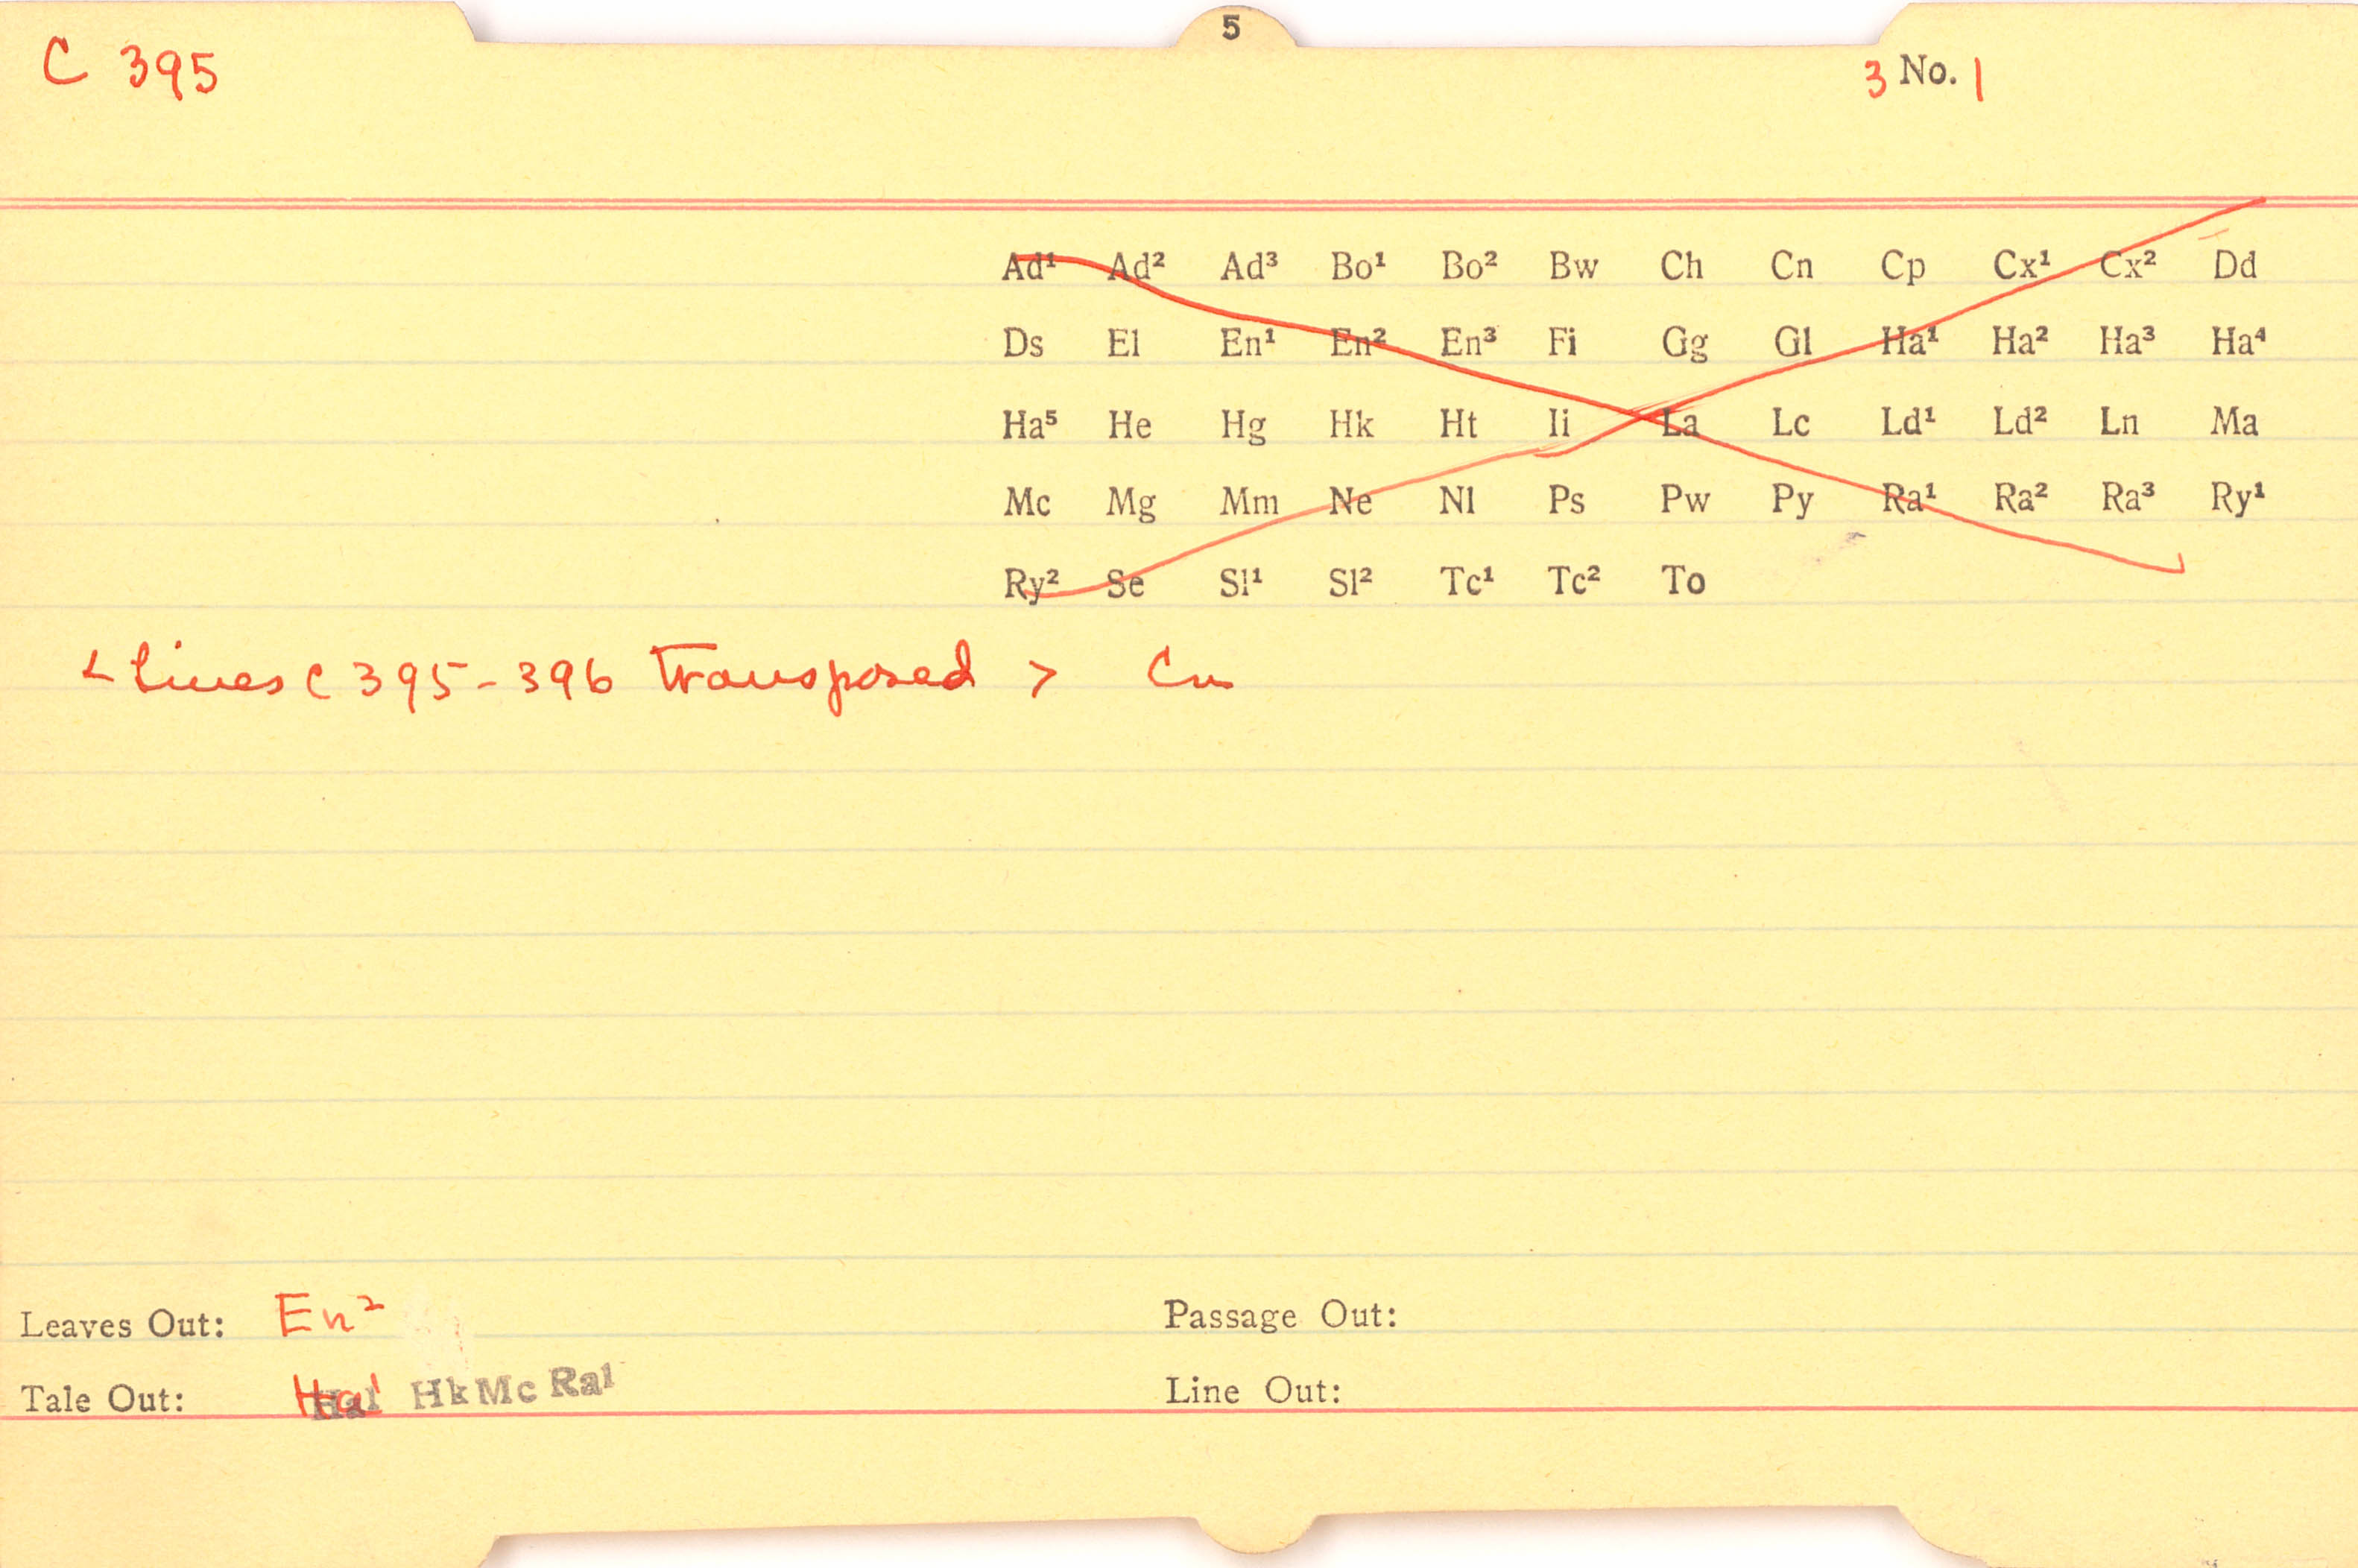 5
C 395
3 No. 1
Ad¹ Ad² Ad³ Bo¹ Bo² Bw Ch Cn Cp Cx¹ Cx² Dd
Ds El En¹ En² En³ Fi Gg Gl Ha¹ Ha² Ha³ Ha⁴
Ha⁵ He Hg Hk Ht Ii La Lc Ld¹ Ld² Ln Ma
Mc Mg Mm Ne Nl Ps Pw Py Ra¹ Ra² Ra³ Ry¹
Ry² Se Sl¹ Sl² Tc¹ Tc² To
< Lines C 395-396 transposed > Cn
Leaves Out: En²
Passage Out:
Tale Out: Ha¹ Hk Mc Ra¹
Line Out: